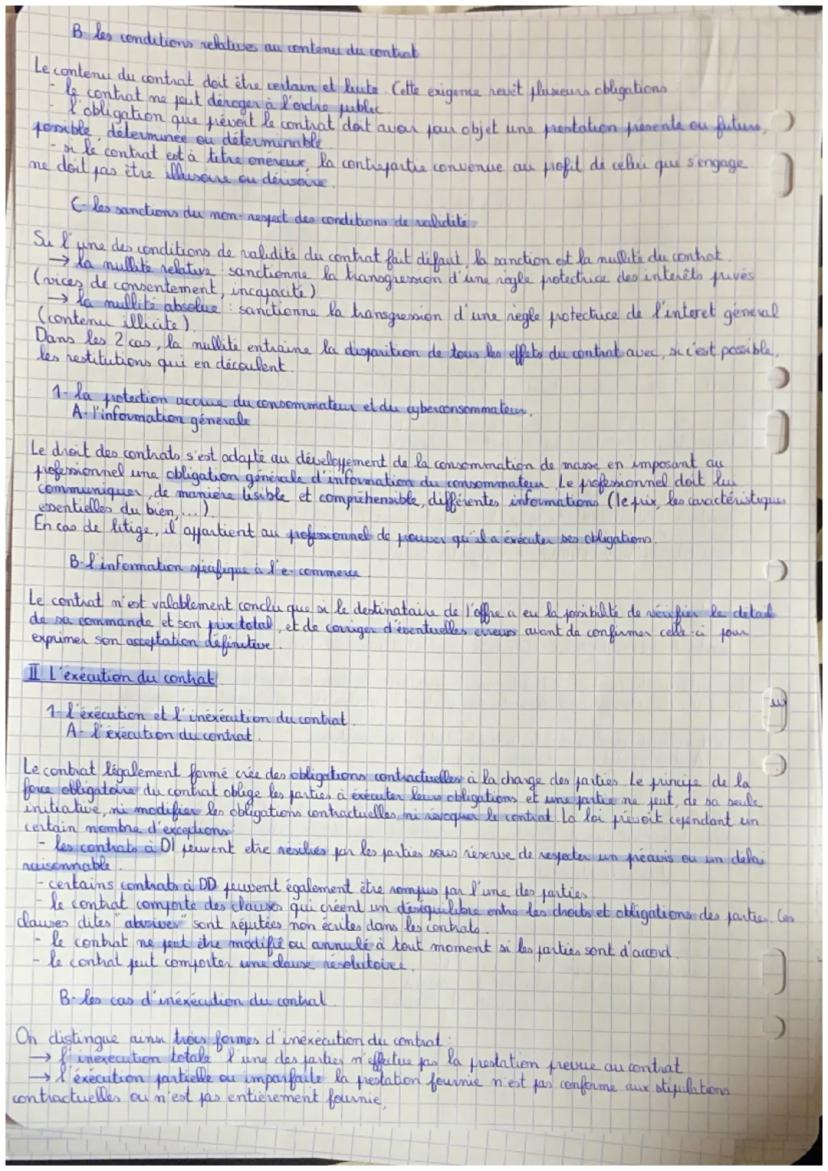 B- les conditions relatives au contenu du contrat
Le contenu du contrat doit être certain et licite. Cette exigence revêt plusieurs obligations
- le contrat ne peut déroger à l'ordre public
- l'obligation que prévoit le contrat doit avoir pour objet une prestation présente ou future,
possible, déterminée ou déterminable
- si le contrat est à titre onéreux, la contrepartie convenue au profit de celui qui s'engage
ne doit pas être illusoire ou dérisoire.
C- les sanctions du non-respect des conditions de validité
Si l'une des conditions de validité du contrat fait défaut, la sanction est la nullité du contrat.
→ la nullité relative sanctionne la transgression d'une règle protectrice des intérêts privés
(vices de consentement, incapacité)
→ la nullité absolue : sanctionne la transgression d'une règle protectrice de l'interet général
(contenu illicite).
Dans les 2 cas, la nullité entraine la disparition de tous les effets du contrat avec, si c'est possible,
les restitutions qui en découlent
1- la protection accrue du consommateur et du cyberconsommateur.
A- l'information générale
Le droit des contrats s'est adapté au développement de la consommation de masse en imposant au
professionnel une obligation générale d'information du consommateur. Le professionnel doit lui
communiquer, de manière lisible et compréhensible, différentes informations (le prix, les caractéristiques
essentielles du bien,...)
En cas de litige, il appartient au professionnel de prouver qu'il a exécuter ses obligations.
B- l'information spécifique à l'e-commerce
Le contrat n'est valablement conclu que si le destinataire de l'offre a eu la possibilité de vérifier le détail
de sa commande et son prix total, et de corriger d'éventuelles erreurs avant de confirmer celle-ci pour
exprimer son acceptation définitive.
II L'exécution du contrat
1- l'exécution et l'inexécution du contrat
A- l'exécution du contrat.
Le contrat légalement formé crée des obligations contractuelles à la charge des parties. Le principe de la
force obligatoire du contrat oblige les parties à exécuter leurs obligations et une partie ne peut, de sa seule
initiative, ni modifier les obligations contractuelles ni révoquer le contrat. La loi prévoit cependant un
certain nombre d'exceptions
- les contrats à DI peuvent etre résiliés par les parties sous réserve de respecter un préavis ou un délai
raisonnable.
- certains contrats à DD peuvent également être rompus par l'une des parties
- le contrat comporte des clauses qui créent un déséquilibre entre les droits et obligations des parties. Ces
clauses dites "abusives" sont réputées non écrites dans les contrats.
- le contrat ne peut être modifié ou annulé à tout moment si les parties sont d'accord.
- le contrat peut comporter une clause résolutoire.
B- les cas d'inexécution du contrat
On distingue ainsi trois formes d'inexécution du contrat :
→ l'inexécution totale l'une des parties n'effectue pas la prestation prévue au contrat
→ l'exécution partielle ou imparfaite la prestation fournie n'est pas conforme aux stipulations
contractuelles ou n'est pas entièrement fournie,